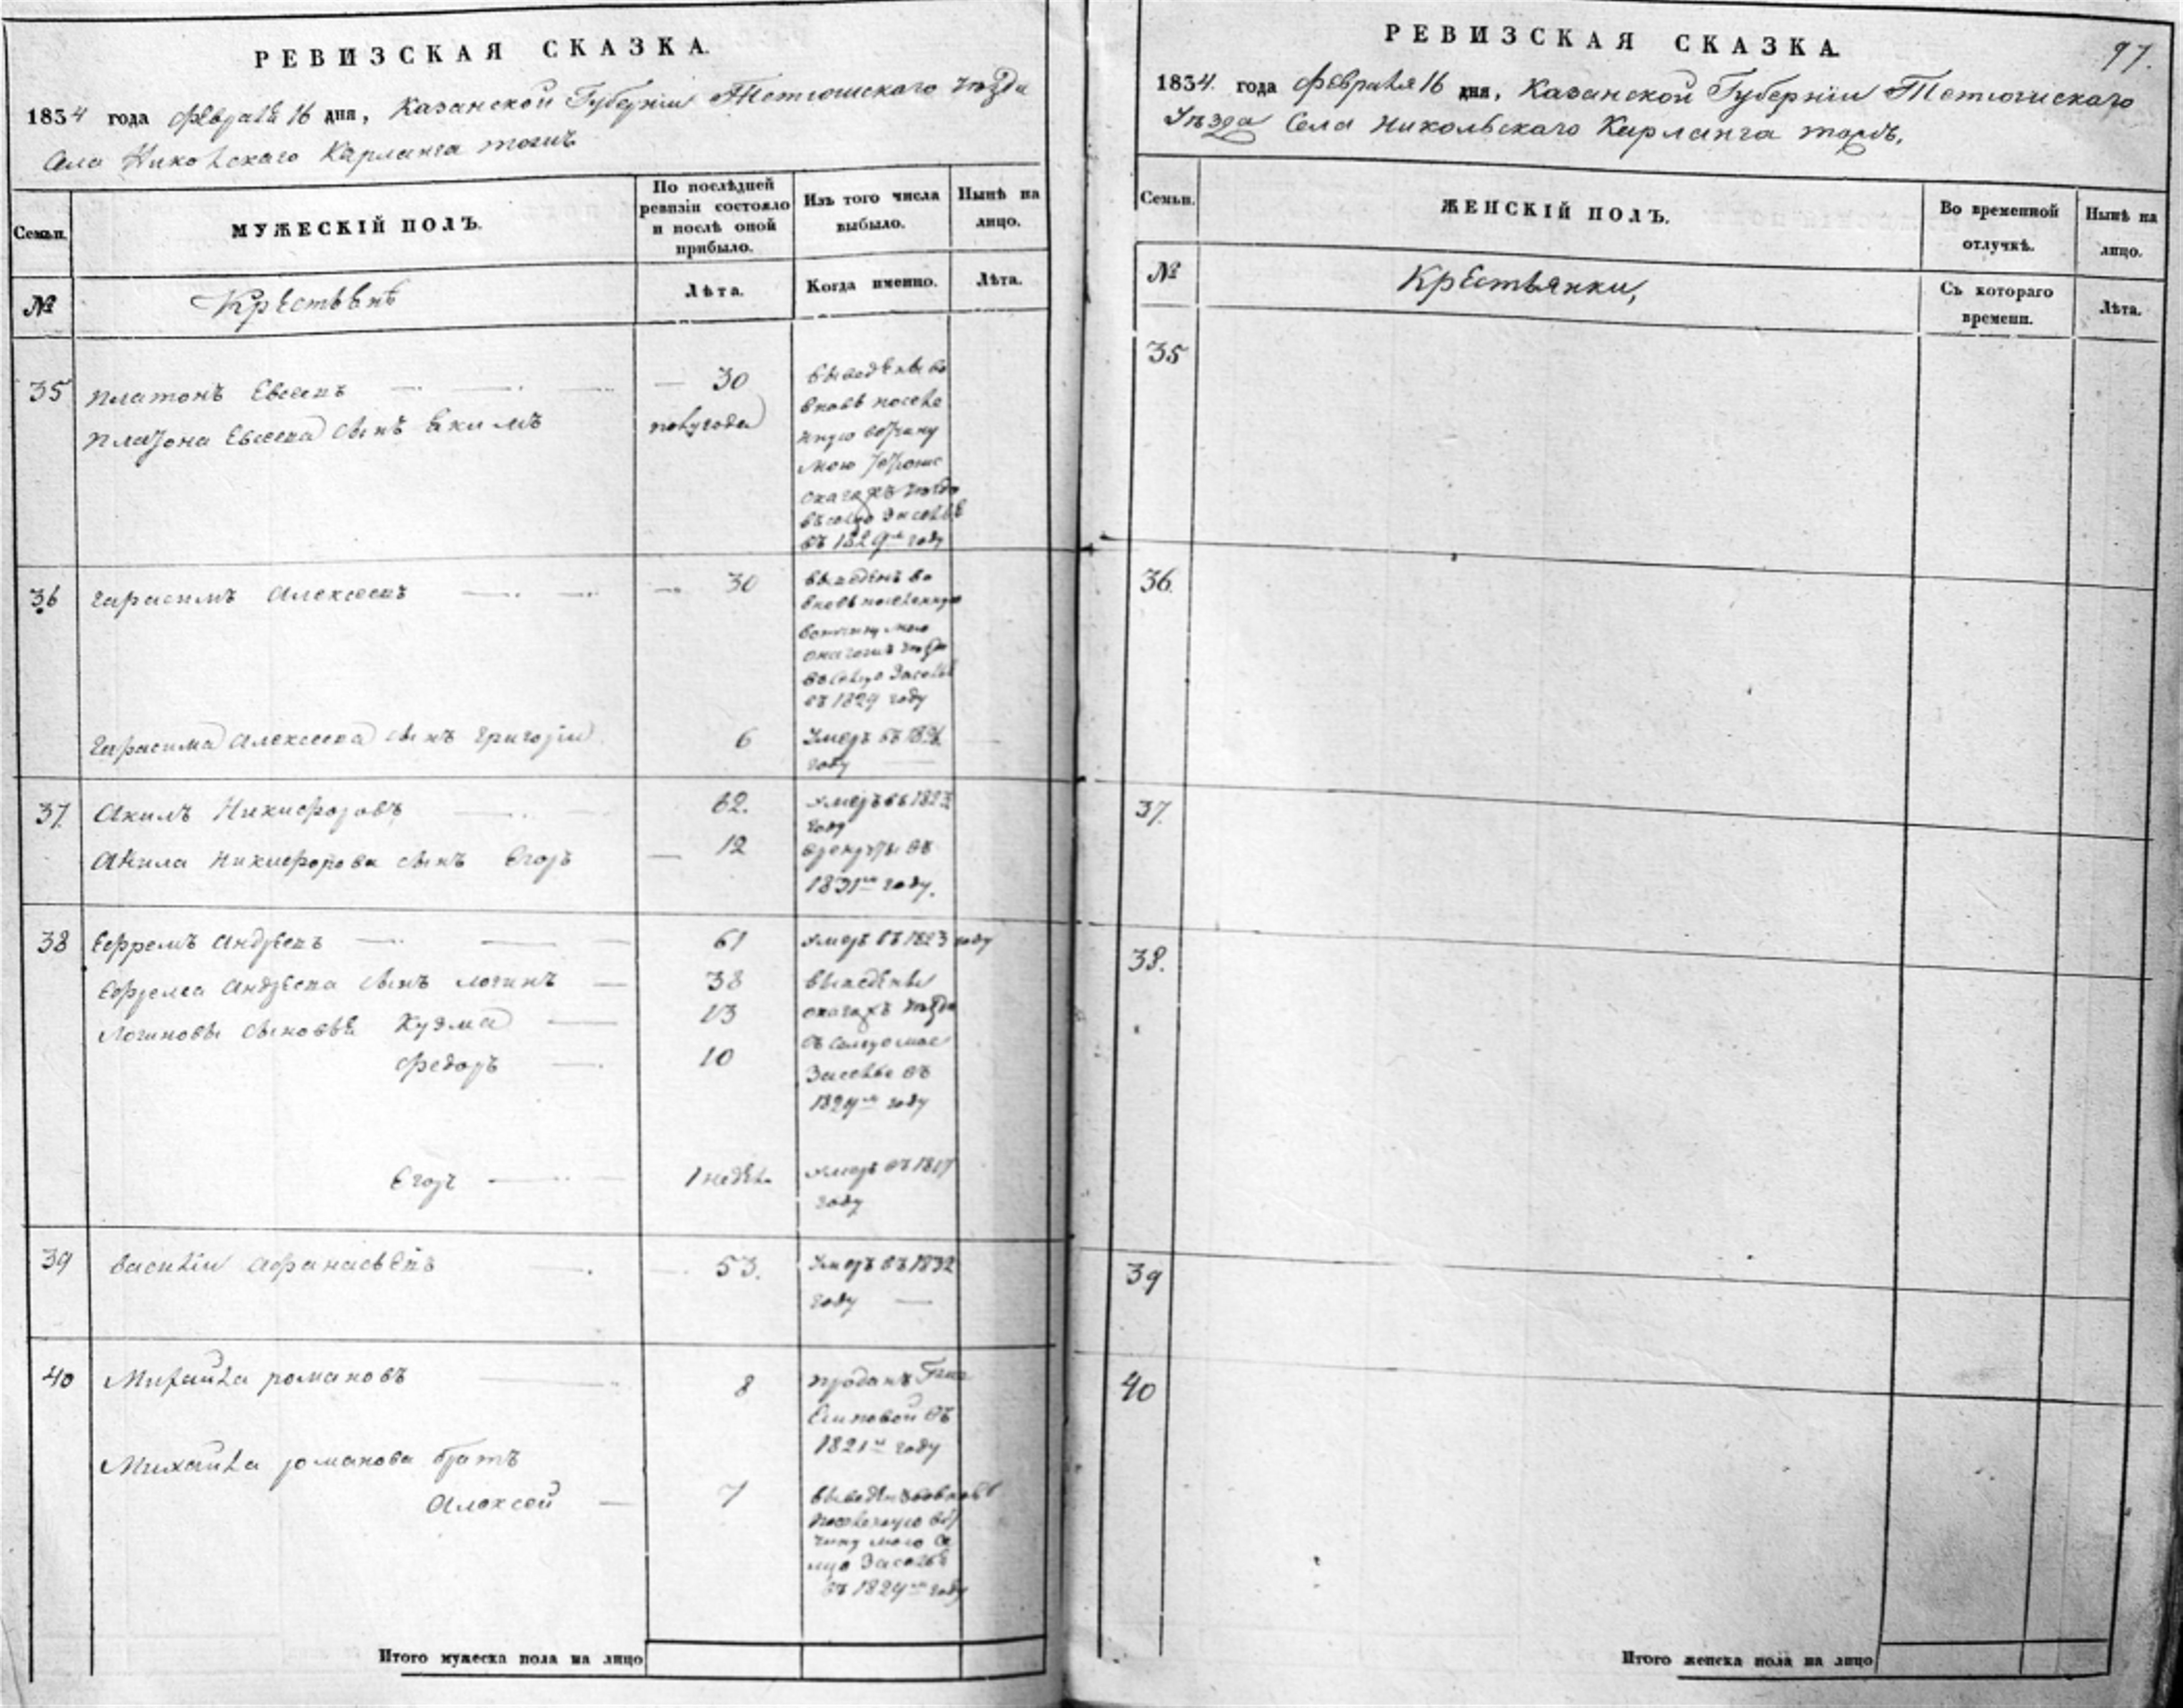 РЕВИЗСКАЯ СКАЗКА.
1834 года Февраля 16 дня, Казанской Губернiи Тетюшскаго Уѣзда
Села Никольскаго Карланга тожъ
Семьи.
МУЖЕСКIЙ ПОЛЪ.
По послѣдней ревизiи состояло и послѣ оной прибыло.
Изъ того числа выбыло.
Нынѣ на лицо.
№
Крестьянѣ
Лѣта.
Когда именно.
Лѣта.
35 Платонъ Евсеевъ 30
Платона Евсеева сынъ Екимъ полугода
выведены во
вновь поселе
нную вотчину
мою
уѣзда
въ 1829м году
36 Герасимъ Алексеевъ 30
выведенъ во
вновь поселенную
вотчину мою
въ 1829 году
Герасима Алексеева сынъ Григорiй 6 Умеръ въ 1826
году
37. Акимъ Никифоровъ 62. умеръ въ 1823
году
Акима Никифорова сынъ Егоръ 12 в рекруты въ
1831м году.
38 Ефремъ Андреевъ 61 умеръ въ 1823 году
Ефрема Андреева сынъ Логинъ 38 выведены
Логиновы сыновьѣ Кузма 13 уѣзда
Федоръ 10 въ сельцо мое
Заселье въ
1829м году
Егоръ 1 недел. умеръ въ 1817
году
39 Василiй Афанасьевъ 53. Умеръ въ 1832
году
40 Михайла романовъ 8 Проданъ Гже
Есиповой въ
1821м году
Михайла романова братъ
Алексей 7 выведенъ вовновь
поселеную вот
чину мою се
льцо Заселье
въ 1829м году
Итого мужеска пола на лицо
РЕВИЗСКАЯ СКАЗКА.
97.
1834. года Февраля 16 дня, Казанской Губернiи Тетюшскаго
Уѣзда Села Никольскаго Карланга тожъ,
Семьи.
ЖЕНСКIЙ ПОЛЪ.
Во временной отлучкѣ.
Нынѣ на лицо.
№
Крестьянки,
Съ котораго времени.
Лѣта.
35
36.
37.
38.
39
40
Итого женска пола на лицо